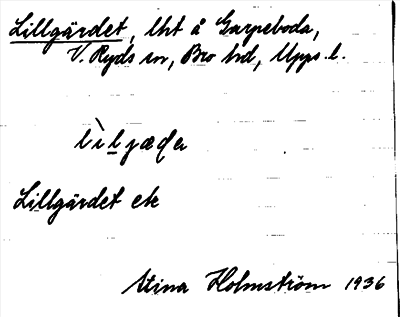 Lillgärdet, lht å Garpeboda,
V. Ryds sn, Bro hd, Upps. l.
lìljæḍe
Lillgärdet ek
Stina Holmström 1936